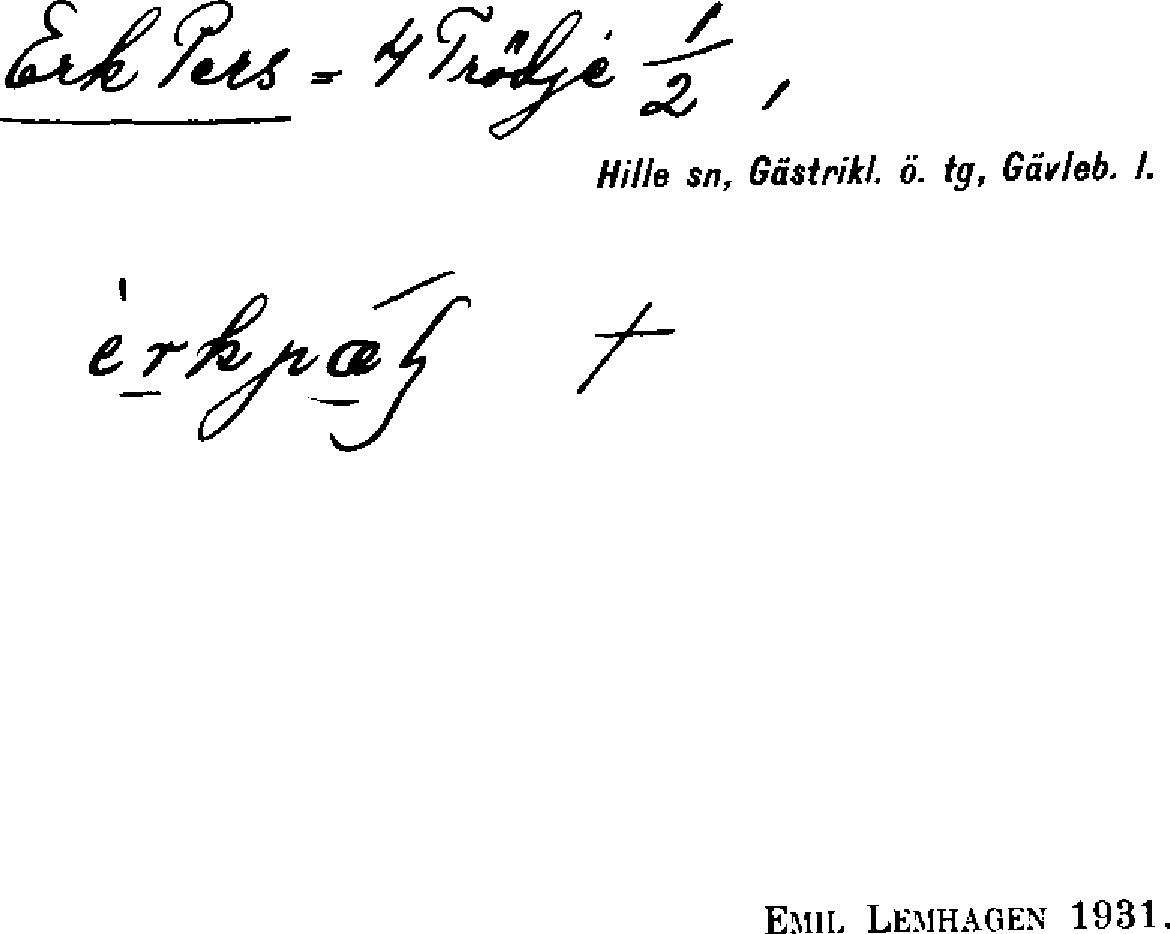 Erk Pers = 4 Trödje 1/2,
Hille sn, Gästrikl. ö. tg, Gävleb. l.
EMIL LEMHAGEN 1931.